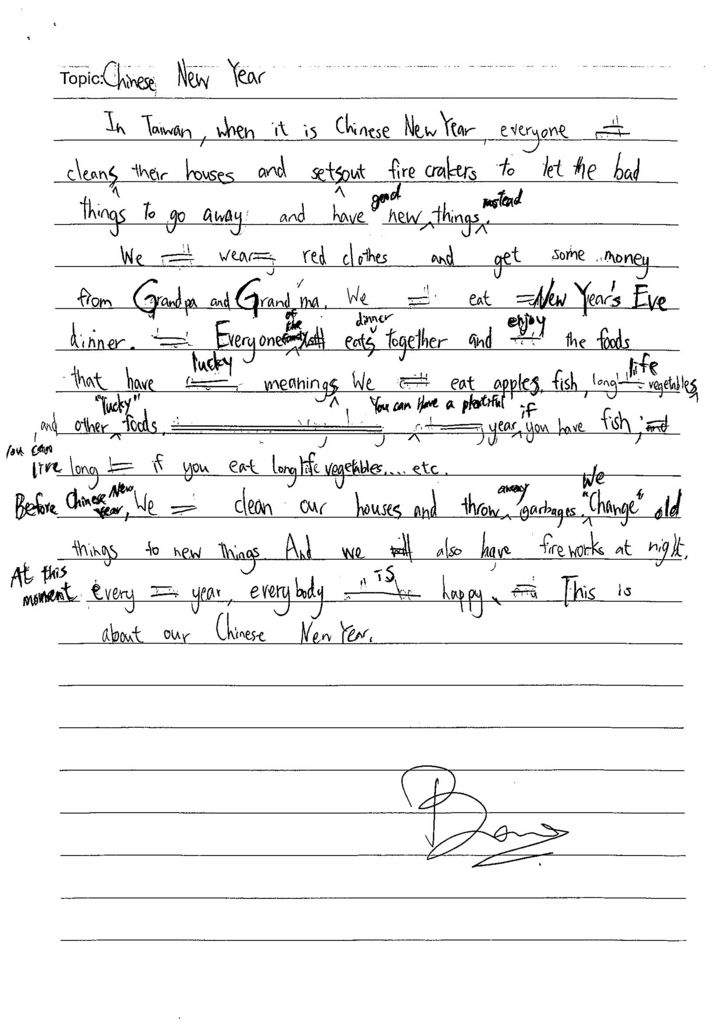 Topic: Chinese New Year
In Taiwan, when it is Chinese New Year, everyone
cleans their houses and sets out fire crakers to let the bad
things to go away and have good new things instead.
We wear red clothes and get some money
from Grandpa and Grand'ma. We eat New Year's Eve
dinner. Everyone of the family eats dinner together and enjoy the foods
that have lucky meanings. We eat apples, fish, long life vegetables,
and other "lucky" foods. You can have a plentiful year if you have fish;
You can live long if you eat long life vegetables.... etc.
Before Chinese New Year, We clean our houses and throw away garbages. We "Change" old
things to new things. And we also have fireworks at night.
At this moment every year, everybody is happy. This is
about our Chinese New Year.